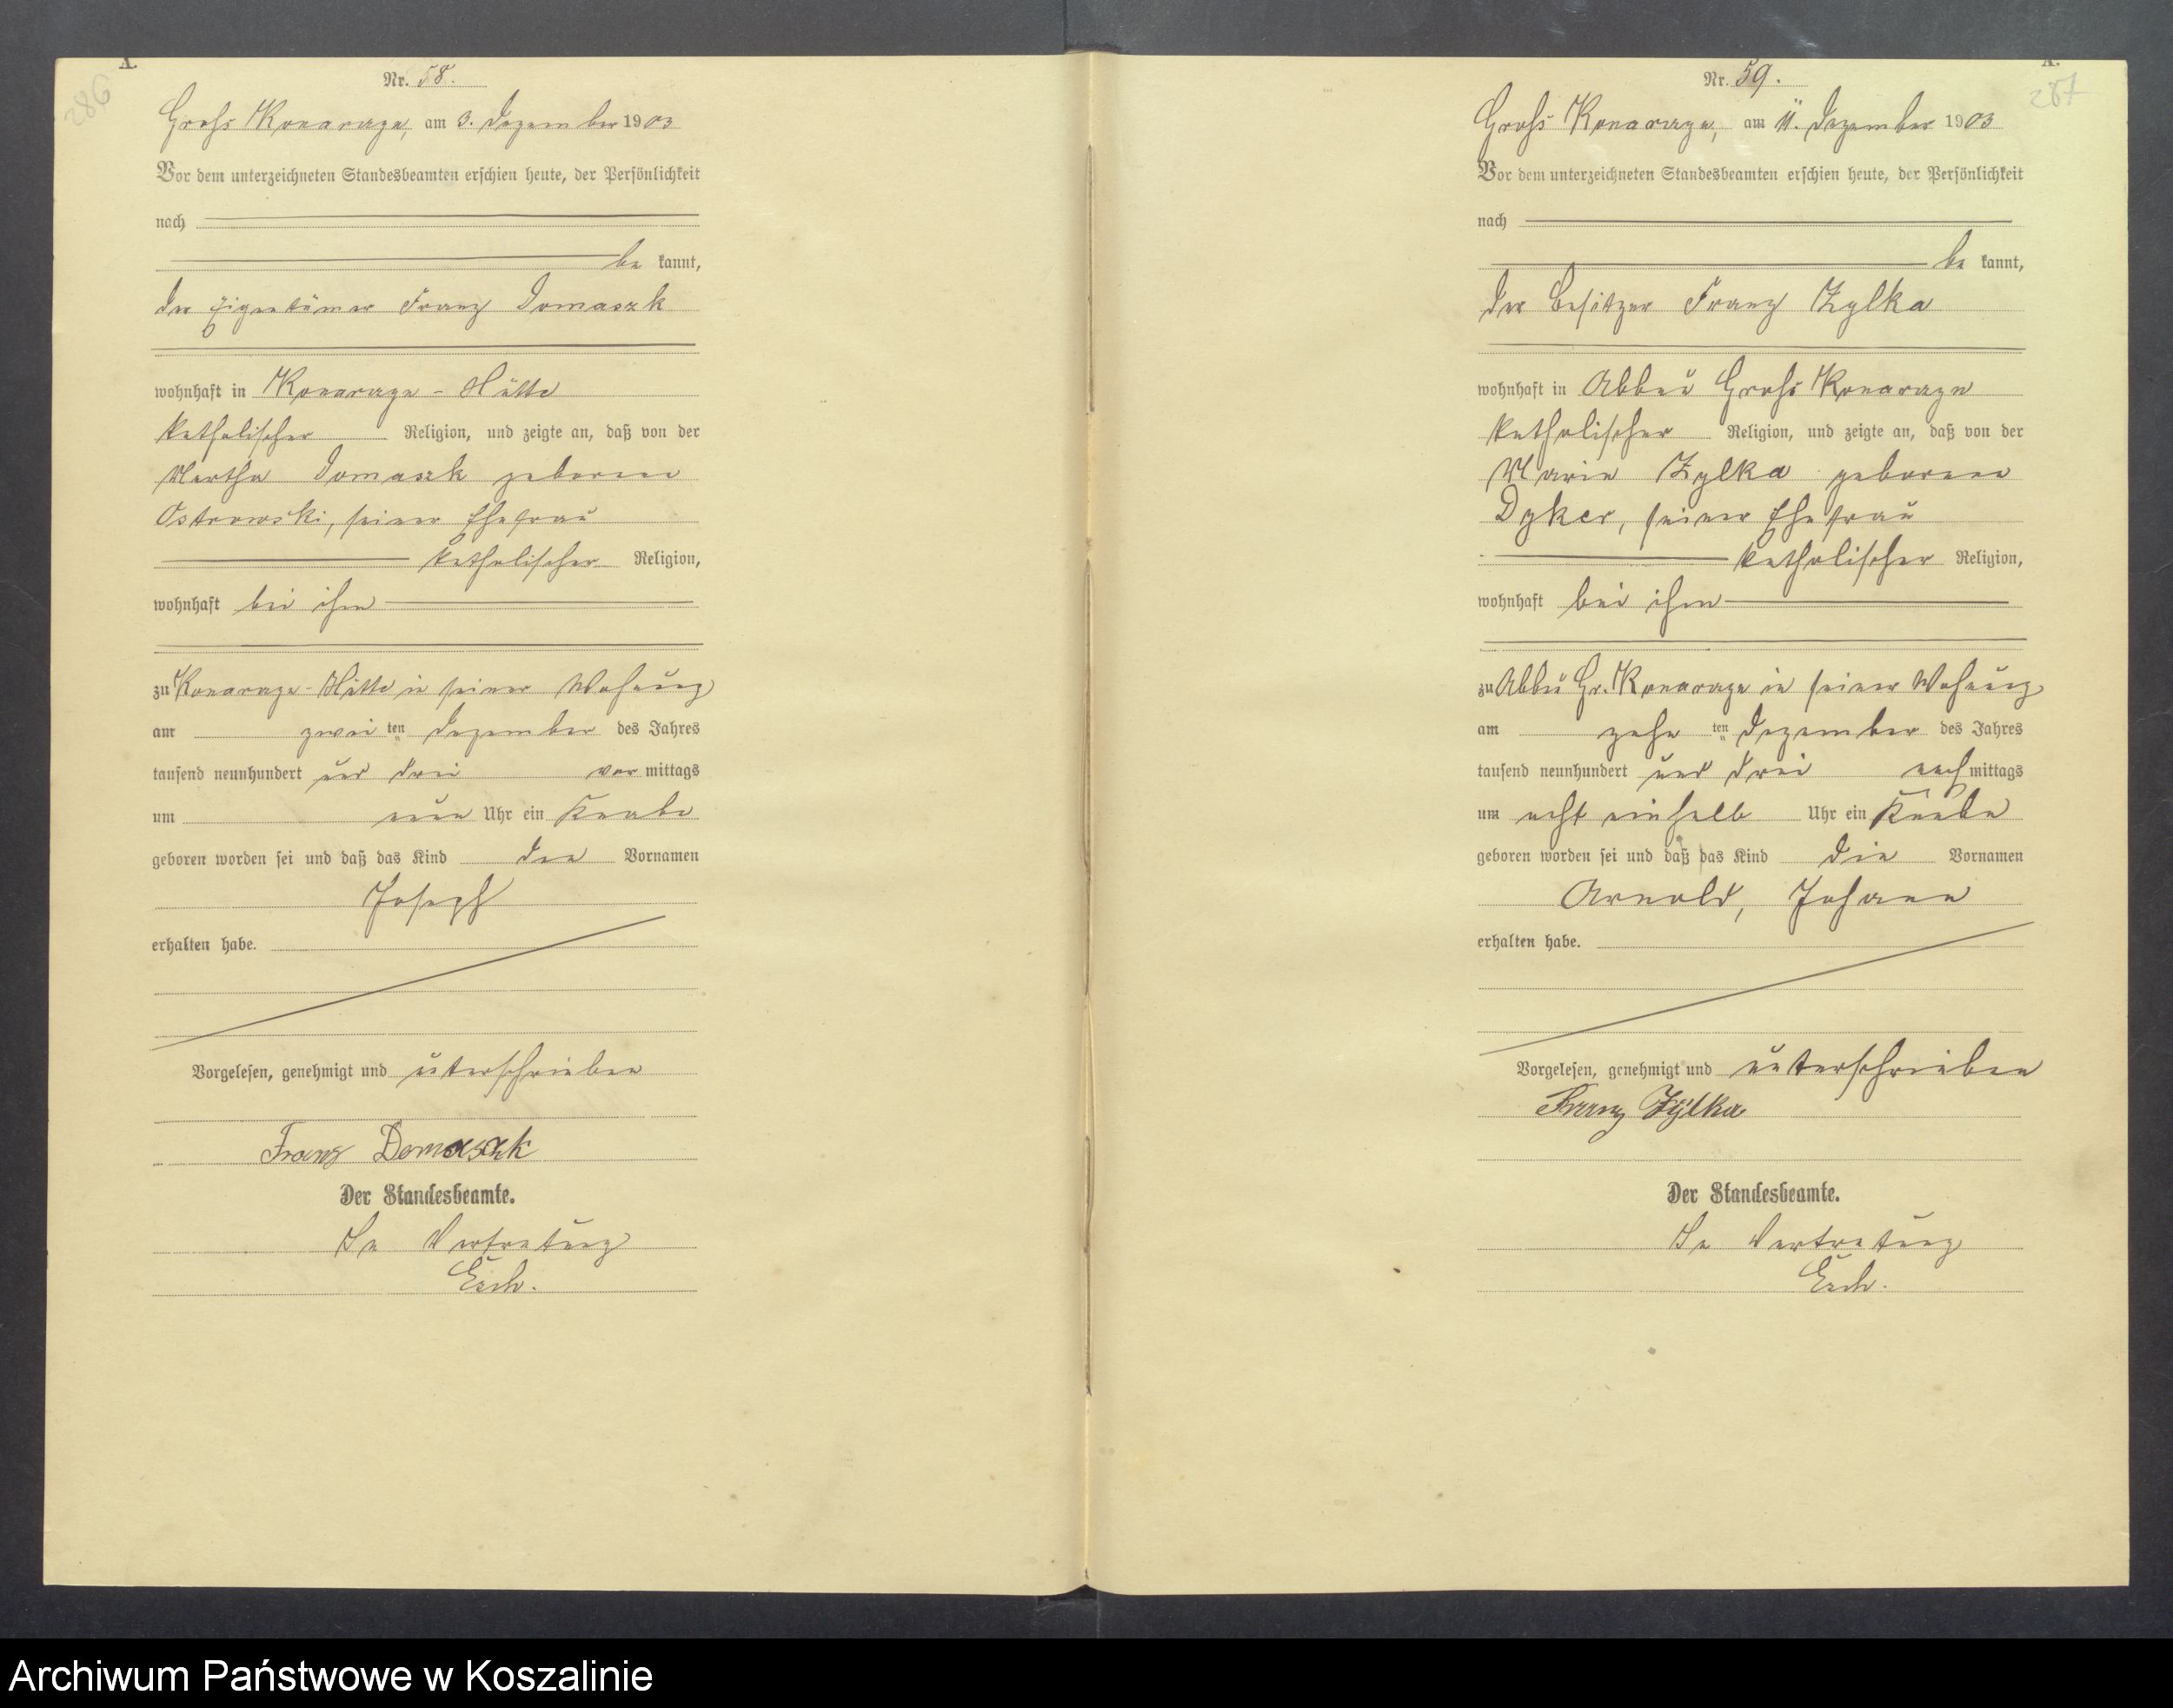 286
A.
Nr. 58.
Groß Konarzyn, am 3. Dezember 1903
Vor dem unterzeichneten Standesbeamten erschien heute, der Persönlichkeit
nach
be kannt,
der Eigentümer Franz Domaszk
wohnhaft in Konarzyn-Hütte
katholischer Religion, und zeigte an, daß von der
Martha Domaszk geborene
Ostrowski, seiner Ehefrau
katholischer Religion,
wohnhaft bei ihm
zu Konarzyn-Hütte in seiner Wohnung
am zwei ten Dezember des Jahres
tausend neunhundert und drei vor mittags
um neun Uhr ein Knabe
geboren worden sei und daß das Kind den Vornamen
Joseph
erhalten habe.
Vorgelesen, genehmigt und unterschrieben
Franz Domaszk
Der Standesbeamte.
In Vertretung
A.
287
Nr. 59.
Groß Konarzyn, am 11. Dezember 1903
Vor dem unterzeichneten Standesbeamten erschien heute, der Persönlichkeit
nach
be kannt,
der Besitzer Franz Zylka
wohnhaft in Abbau Groß Konarzyn
katholischer Religion, und zeigte an, daß von der
Marie Zylka geborene
Dyker, seiner Ehefrau
katholischer Religion,
wohnhaft bei ihm
zu Abbau Gr. Konarzyn in seiner Wohnung
am zehn ten Dezember des Jahres
tausend neunhundert und drei nach mittags
um acht einhalb Uhr ein Knabe
geboren worden sei und daß das Kind die Vornamen
Arnold, Johann
erhalten habe.
Vorgelesen, genehmigt und unterschrieben
Franz Zylka
Der Standesbeamte.
In Vertretung
Archiwum Państwowe w Koszalinie